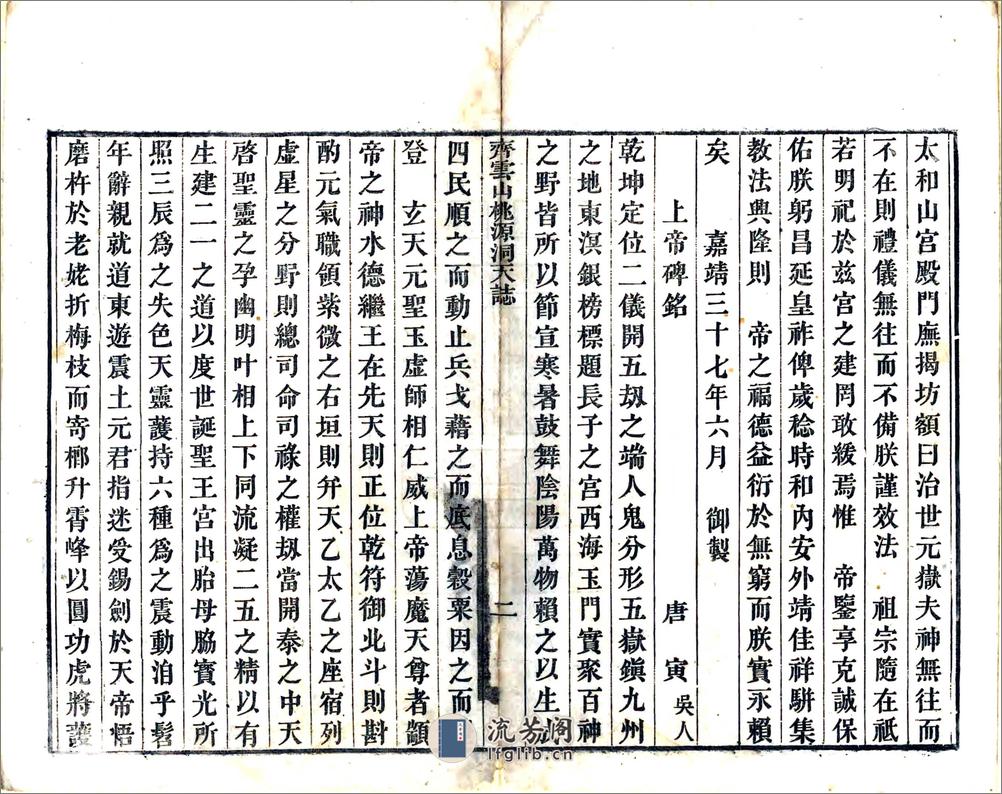 太和山宫殿門廡揭坊額曰治世元嶽夫神無往而
不在則禮儀無往而不備朕謹效法　祖宗隨在祇
若明祀於兹宫之建罔敢緩焉惟　帝鑒享克誠保
佑朕躬昌延皇祚俾歲稔時和内安外靖佳祥駢集
教法興隆則　帝之福德益衍於無窮而朕實永賴
矣　　嘉靖三十七年六月　御製
上帝碑銘　　唐寅 吳人
乾坤定位二儀開五刼之端人鬼分形五嶽鎭九州
之地東溟銀榜標題長子之宫西海玉門實聚百神
之野皆所以節宣寒暑鼓舞陰陽萬物賴之以生
齊雲山桃源洞天誌　　二
四民順之而動止兵戈藉之而底息穀粟因之而
登　玄天元聖玉虚師相仁威上帝蕩魔天尊者顓
帝之神水德繼王在先天則正位乾符御北斗則斟
酌元氣職領紫微之右垣則幷天乙太乙之座宿列
虚星之分野則總司命司祿之權刼當開泰之中天
啓聖靈之孕幽明叶相上下同流凝二五之精以有
生建二一之道以度世誕聖王宫出胎母脇寳光所
照三辰爲之失色天靈護持六種爲之震動洎乎髫
年辭親就道東遊震土元君指迷受錫劍於天帝悟
磨杵於老姥折梅枝而寄榔升霄峰以圓功虎將護
流芳閣
lfglib.cn